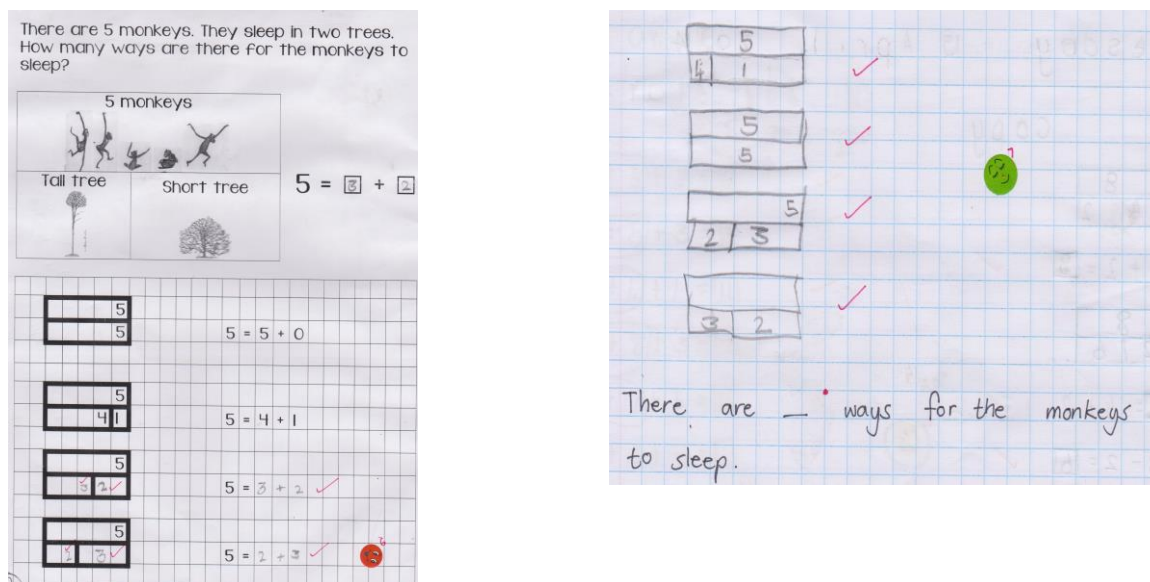 There are 5 monkeys. They sleep in two trees.
How many ways are there for the monkeys to
sleep?
5 monkeys
Tall tree Short tree
5 = 3 + 2
5
5
5 = 5 + 0
5
4 1
5 = 4 + 1
5
3 2
5 = 3 + 2
5
2 3
5 = 2 + 3
5
4 1
5
5
5
2 3
3 2
There are _ ways for the monkeys
to sleep.